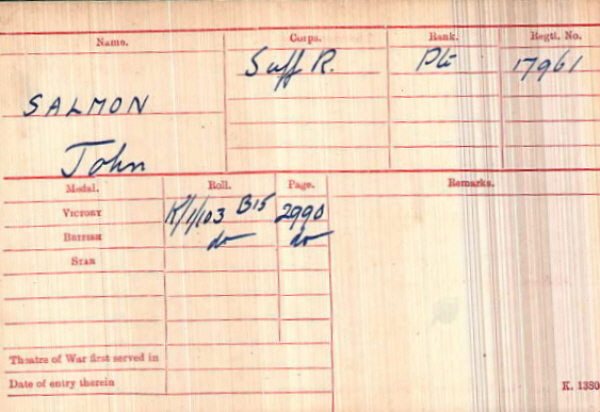 Name. Corps. Rank. Regtl. No.
SALMON Suff R. Pte 17961
John
Medal. Roll. Page. Remarks.
VICTORY K/1/103 B15 2990
BRITISH do do
STAR
Theatre of War first served in
Date of entry therein
K. 1380